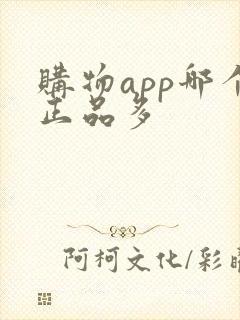 購物app哪个
正品多
阿柯文化/彩